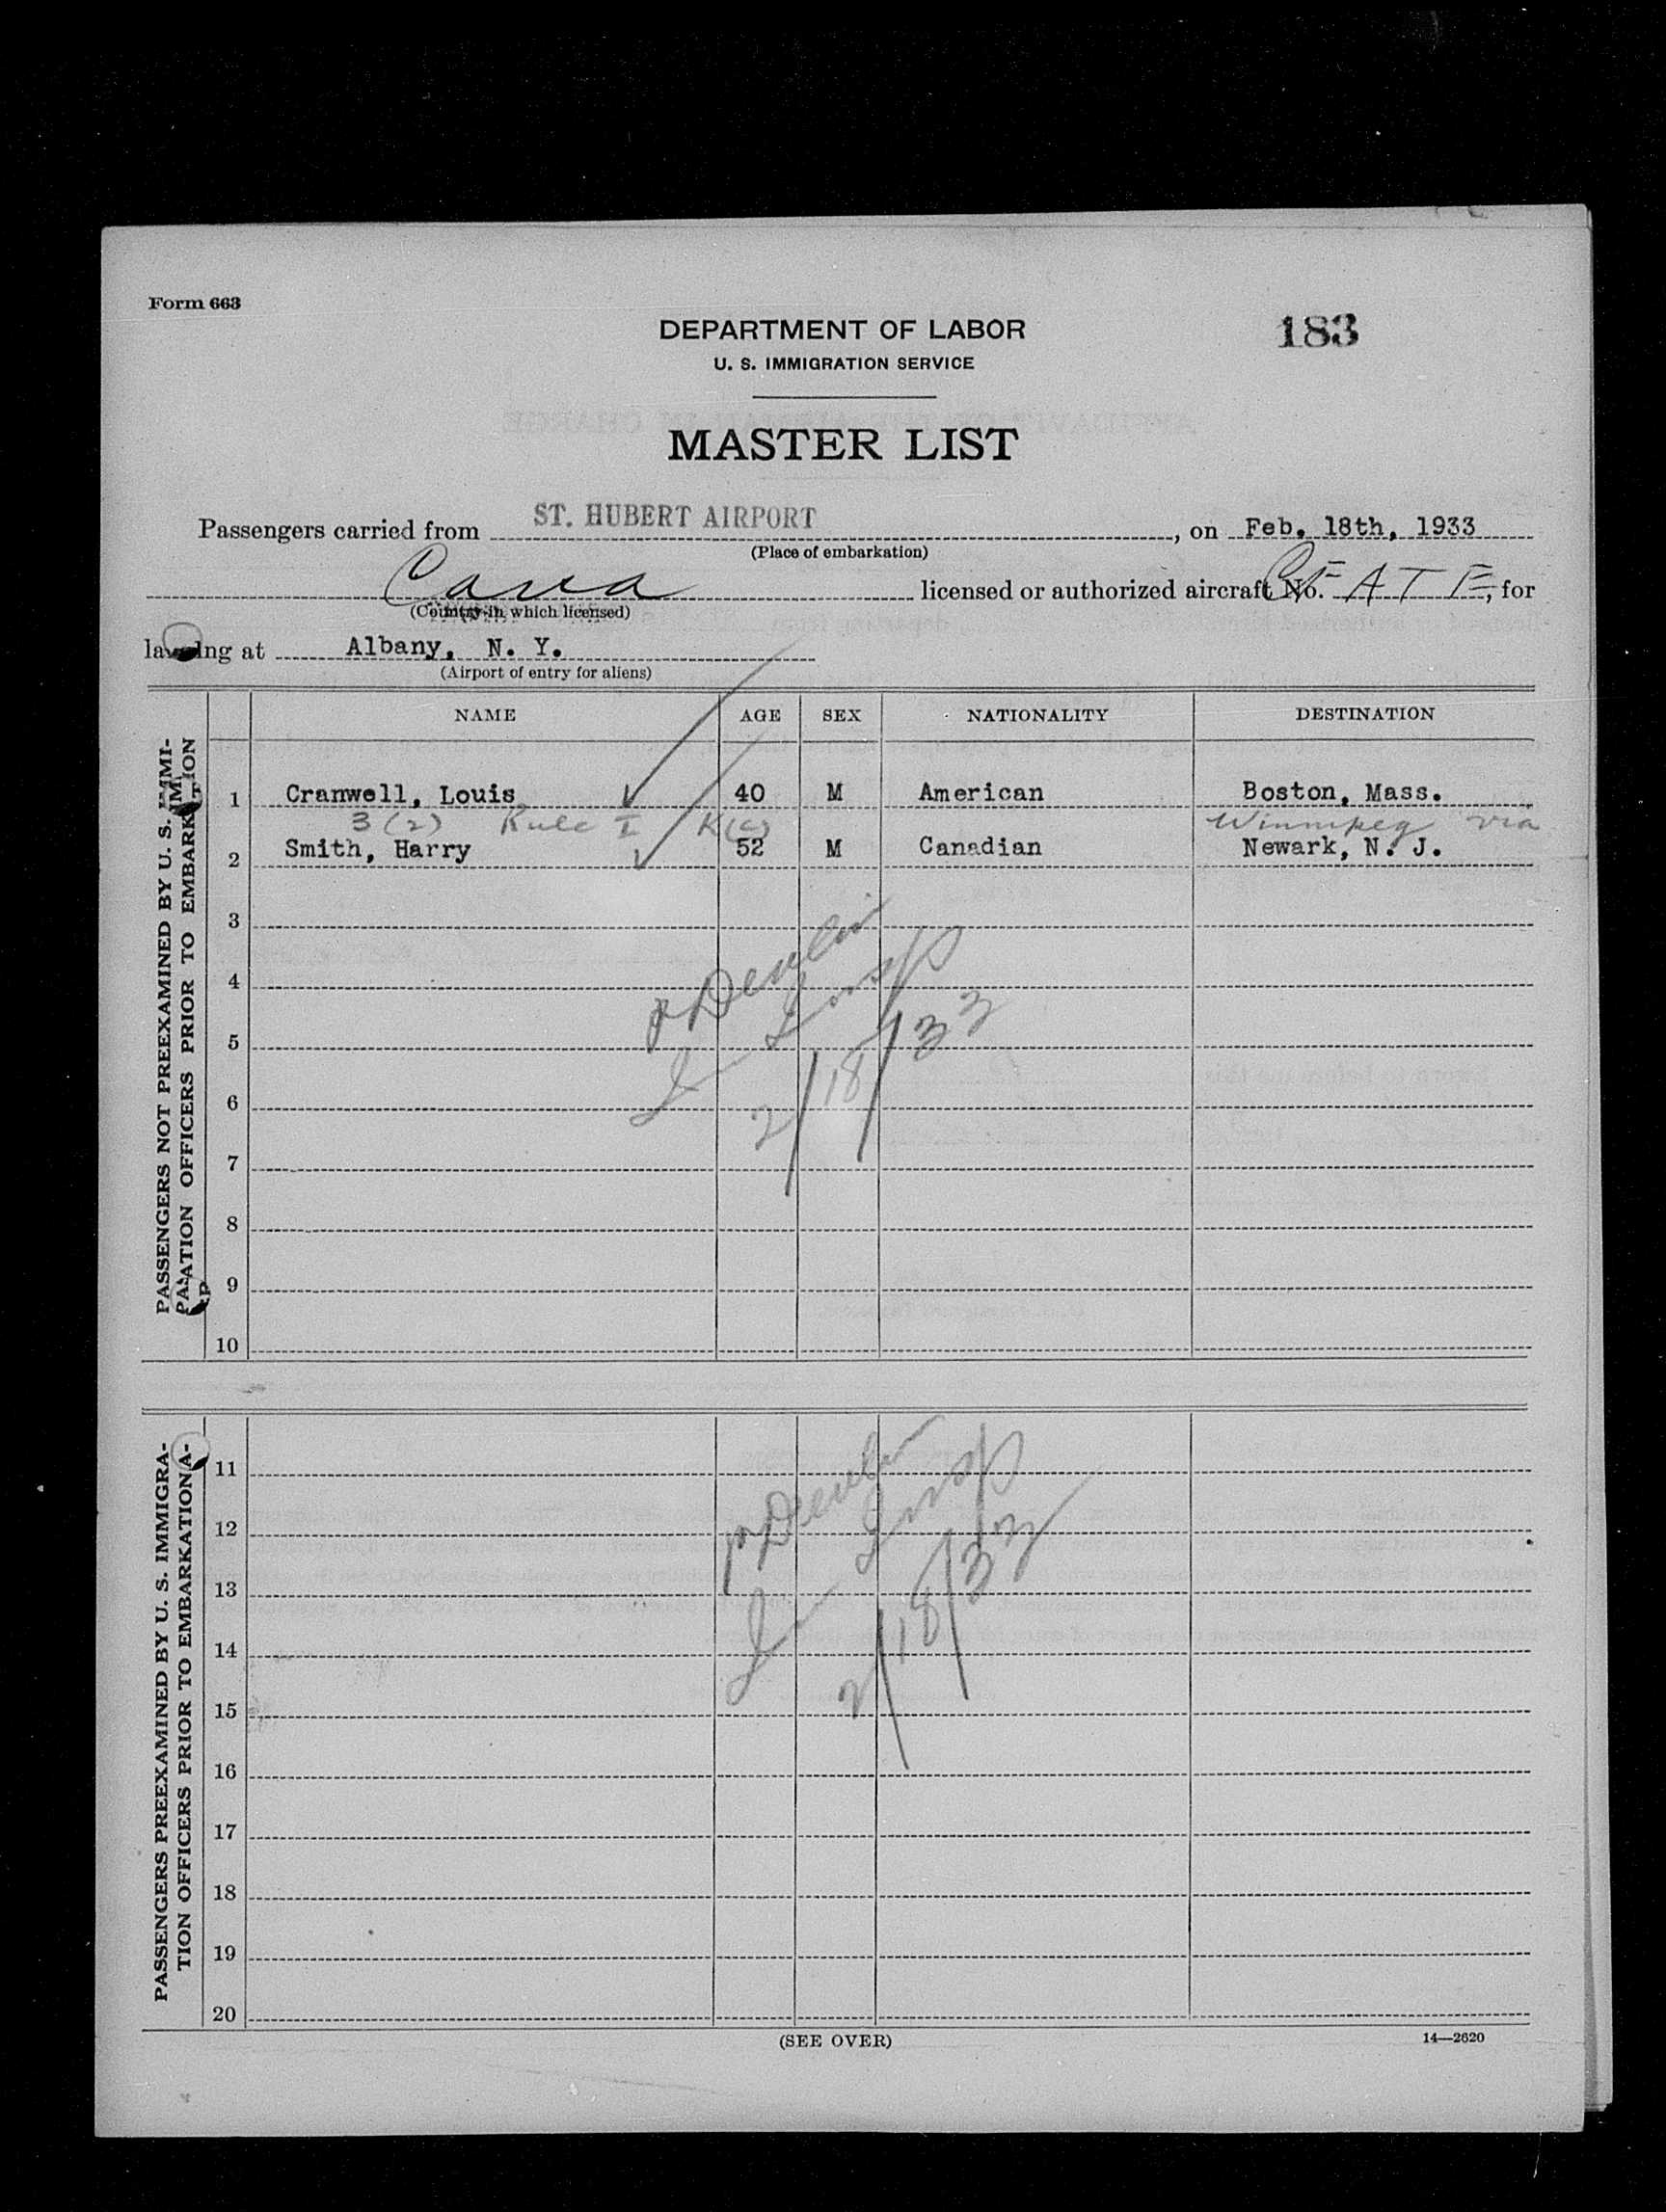 Form 663
DEPARTMENT OF LABOR
183
U. S. IMMIGRATION SERVICE
MASTER LIST
Passengers carried from ST. HUBERT AIRPORT, on Feb. 18th, 1933
(Place of embarkation)
Cana licensed or authorized aircraft No. CF ATF, for
(Country in which licensed)
landing at Albany, N. Y.
(Airport of entry for aliens)
NAME AGE SEX NATIONALITY DESTINATION
PASSENGERS NOT PREEXAMINED BY U. S. IMMI-
GRATION OFFICERS PRIOR TO EMBARKATION
1 Cranwell, Louis 40 M American Boston, Mass.
3(2) Rule I K(c) Winnipeg via
2 Smith, Harry 52 M Canadian Newark, N. J.
3
4
5
6
7
8
9
10
Devlin
Insp
2/18/33
PASSENGERS PREEXAMINED BY U. S. IMMIGRA-
TION OFFICERS PRIOR TO EMBARKATION
11
12
13
14
15
16
17
18
19
20
Devlin
Insp
2/18/33
(SEE OVER)
14—2620